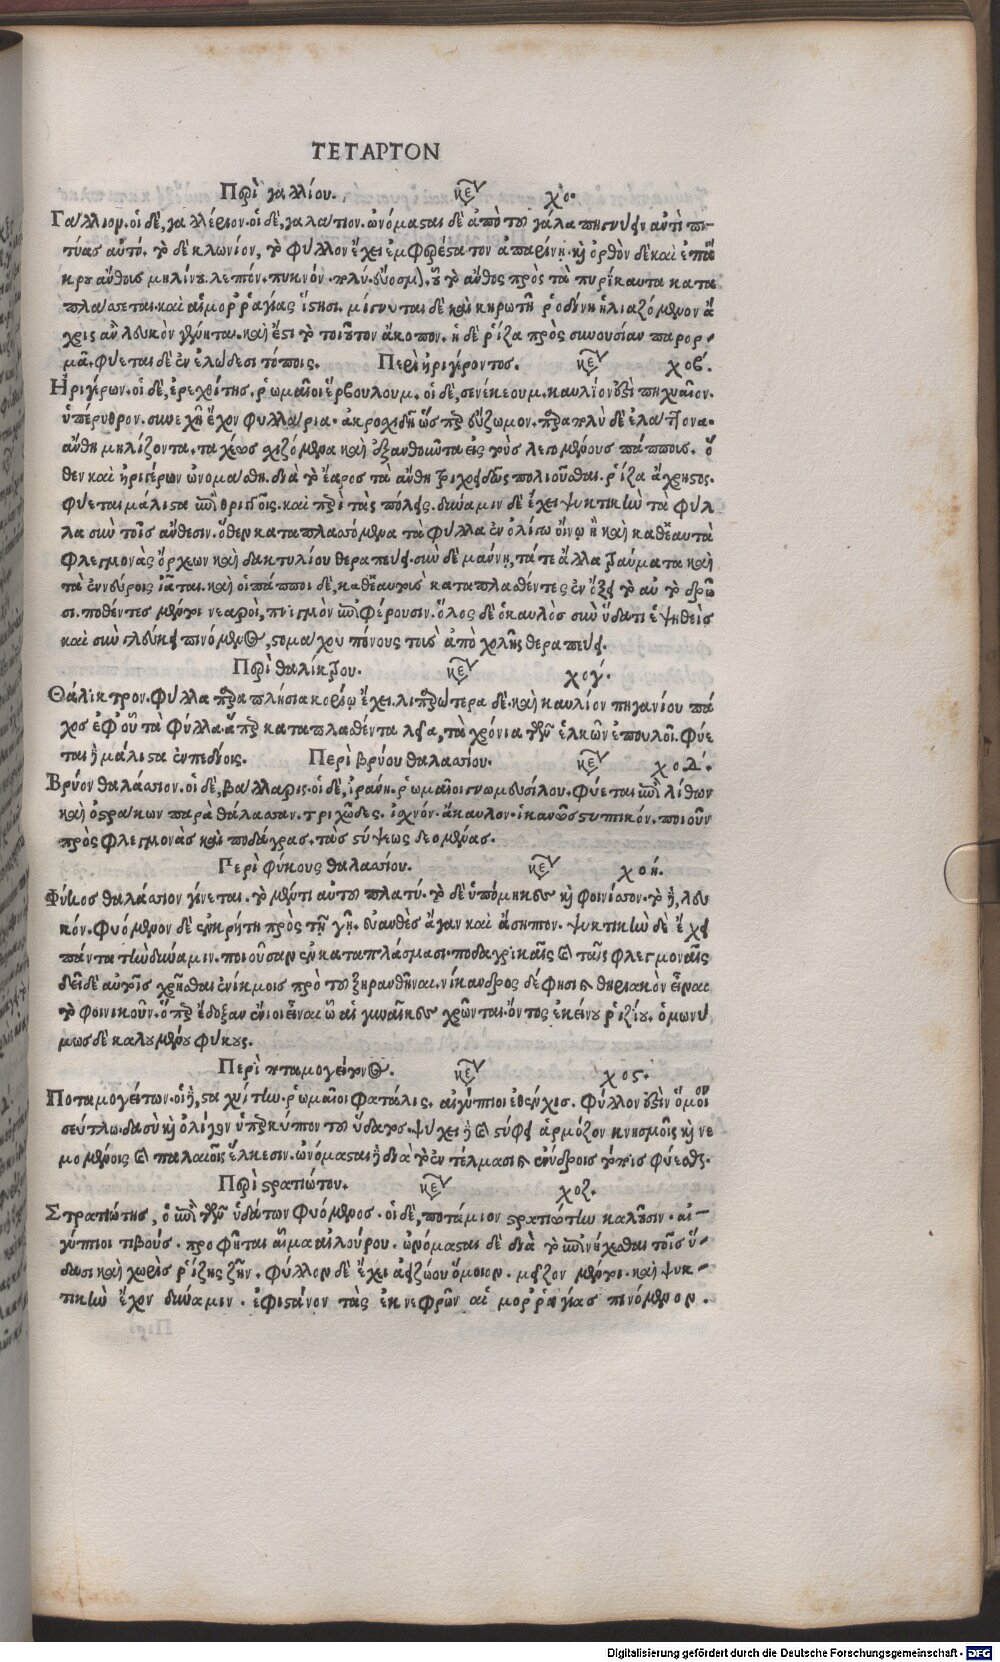 ΤΕΤΑΡΤΟΝ
Περὶ γαλλίου. κεφ χο.
Γάλλιον. οἱ δὲ, γαλλέριον. οἱ δὲ, γαλάτιον. ὠνόμασται δὲ ἀπὸ τοῦ γάλα πηγνύειν ἀντὶ πι-
τύας αὐτό. τὸ δὲ κλωνίον, τὸ φύλλον ἔχει ἐμφερέστατον ἀπαρίνῃ. καὶ ὀρθὸν δὲ καὶ ἐπ' ἄ
κρου ἄνθος μηλίνου λεπτόν. πυκνόν. πολύ. εὔοσμον. οὗ τὸ ἄνθος πρὸς τὰ πυρίκαυτα κατα
πλάσσεται. καὶ αἱμορῥαγίας ἵστησι. μίγνυται δὲ καὶ κηρωτῇ ῥοδίνῃ ἡλιαζόμενον ἄ
χρις ἂν λευκὸν γένηται. καὶ ἔστι τὸ τοιοῦτον ἄκοπον. ἡ δὲ ῥίζα πρὸς συνουσίαν παρορ-
μᾷ. φύεται δὲ ἐν ἑλώδεσι τόποις. Περὶ ἠριγέροντος. κεφ χοβ.
Ἠριγέρων. οἱ δὲ, ἐρεχθίτης. ῥωμαῖοι ἕρβουλουμ. οἱ δὲ, σενέκεουμ. καυλίον ἐστὶ πηχυαῖον.
ὑπέρυθρον. συνεχῆ ἔχον φυλλάρια. ἀκροσχιδῆ ὥσπερ εὔζωμον. παραπολὺ δὲ ἐλάττονα.
ἄνθη μηλίζοντα. ταχέως σχιζόμενα καὶ ἐξανθοῦντα εἰς τοὺς λεγομένους πάππους. ὅ
θεν καὶ ἠριγέρων ὠνομάσθη. διὰ τὸ ἔαρος τὰ ἄνθη τριχοειδῶς πολιοῦσθαι. ῥίζα ἄχρηστος.
φύεται μάλιστα ἐπὶ θριγκοῖς. καὶ περὶ τὰς πόλεις. δύναμιν δὲ ἔχει ψυκτικὴν τὰ φύλ
λα σὺν τοῖς ἄνθεσιν. ὅθεν καταπλασσόμενα τὰ φύλλα ἐν ὀλίγῳ οἴνῳ ἢ καὶ καθ' ἑαυτὰ
φλεγμονὰς ὄρχεων καὶ δακτυλίου θεραπεύει. σὺν δὲ μάννῃ, τά τε ἄλλα τραύματα καὶ
τὰ ἐν νεύροις ἰᾶται. καὶ οἱ πάπποι δὲ, καθ' ἑαυτοὺς καταπλασθέντες ἐν ὄξει τὸ αὐτὸ δρῶ
σι. ποθέντες μέντοι νεαροί, πνιγμὸν ἐπιφέρουσιν. ὅλος δὲ ὁ καυλὸς σὺν ὕδατι ἑψηθεὶς
καὶ σὺν γλεύκει πινόμενος, στομάχου πόνους τοὺς ἀπὸ χολῆς θεραπεύει.
Περὶ θαλίκτρου. κεφ χογ.
Θάλικτρον. φύλλα παραπλήσια κορίῳ ἔχει. λιπαρώτερα δὲ. καὶ καυλίον πηγανίου πά
χος ἐφ' οὗ τὰ φύλλα. ἅπερ καταπλασθέντα λεῖα, τὰ χρόνια τῶν ἑλκῶν ἐπουλοῖ. φύε
ται δὲ μάλιστα ἐν πεδίοις. Περὶ βρύου θαλασσίου. κεφ χοδ.
Βρύον θαλάσσιον. οἱ δὲ, βάλλαρις. οἱ δὲ, ἱράνη. ῥωμαῖοι γνωμυσίλου. φύεται ἐπὶ λίθων
καὶ ὀστράκων παρὰ θάλασσαν. τριχῶδες. ἰσχνόν. ἄκαυλον. ἱκανῶς στυπτικόν. ποιοῦν
πρὸς φλεγμονὰς καὶ ποδάγρας. τὰς στύψεως δεομένας.
Περὶ φύκους θαλασσίου. κεφ χοέ.
Φῦκος θαλάσσιον γίνεται. τὸ μέν τι αὐτοῦ πλατύ. τὸ δὲ ὑπόμηκες καὶ φοινίσσον. τὸ δὲ, λευ
κόν. φυόμενον δὲ ἐν κρήτῃ πρὸς τῇ γῇ. εὐανθὲς ἄγαν καὶ ἄσηπτον. ψυκτικὴν δὲ ἔχει
πάντα τὴν δύναμιν. ποιοῦσαν ἐν καταπλάσμασι ποδαγρικαῖς καὶ ταῖς φλεγμοναῖς
δεῖ δὲ αὐτοῖς χρῆσθαι ἐνίκμοις πρὸ τοῦ ξηρανθῆναι. νίκανδρος δέ φησι καὶ θηριακὸν εἶναι
τὸ φοινικοῦν. ὅπερ ἔδοξαν ἔνιοι εἶναι ᾧ αἱ γυναῖκες χρῶνται. ὄντος ἐκείνου ῥιζίου. ὁμωνύ
μως δὲ καλουμένου φύκους.
Περὶ ποταμογείτονος. κεφ χος.
Ποταμογείτων. οἱ δὲ, σταχύτην. ῥωμαῖοι φατάλις. αἰγύπτιοι ἐθένχις. φύλλον ἐστὶν ὅμοιον
σεύτλῳ. δασὺ καὶ ὀλίγον ὑπερκύπτον τοῦ ὕδατος. ψύχει δὲ καὶ στύφει ἁρμόζον κνησμοῖς καὶ νε
μομένοις καὶ παλαιοῖς ἕλκεσιν. ὠνόμασται δὲ διὰ τὸ ἐν τέλμασι καὶ ἐνύδροις τόποις φύεσθαι.
Περὶ στρατιώτου. κεφ χοζ.
Στρατιώτης, ὁ ἐπὶ τῶν ὑδάτων φυόμενος. οἱ δὲ, ποτάμιον στρατιώτην καλοῦσιν. αἰ-
γύπτιοι τιβούς. προφῆται αἷμα αἰλούρου. ὠνόμασται δὲ διὰ τὸ ἐπινήχεσθαι τοῖς ὕ-
δασι καὶ χωρὶς ῥίζης ζῆν. φύλλον δὲ ἔχει ἀειζώου ὅμοιον. μεῖζον μέντοι. καὶ ψυκ-
τικὴν ἔχον δύναμιν. ἐφιστάνον τὰς ἐκ νεφρῶν αἱμορῥαγίας πινόμενον.
Digitalisierung gefördert durch die Deutsche Forschungsgemeinschaft - DFG